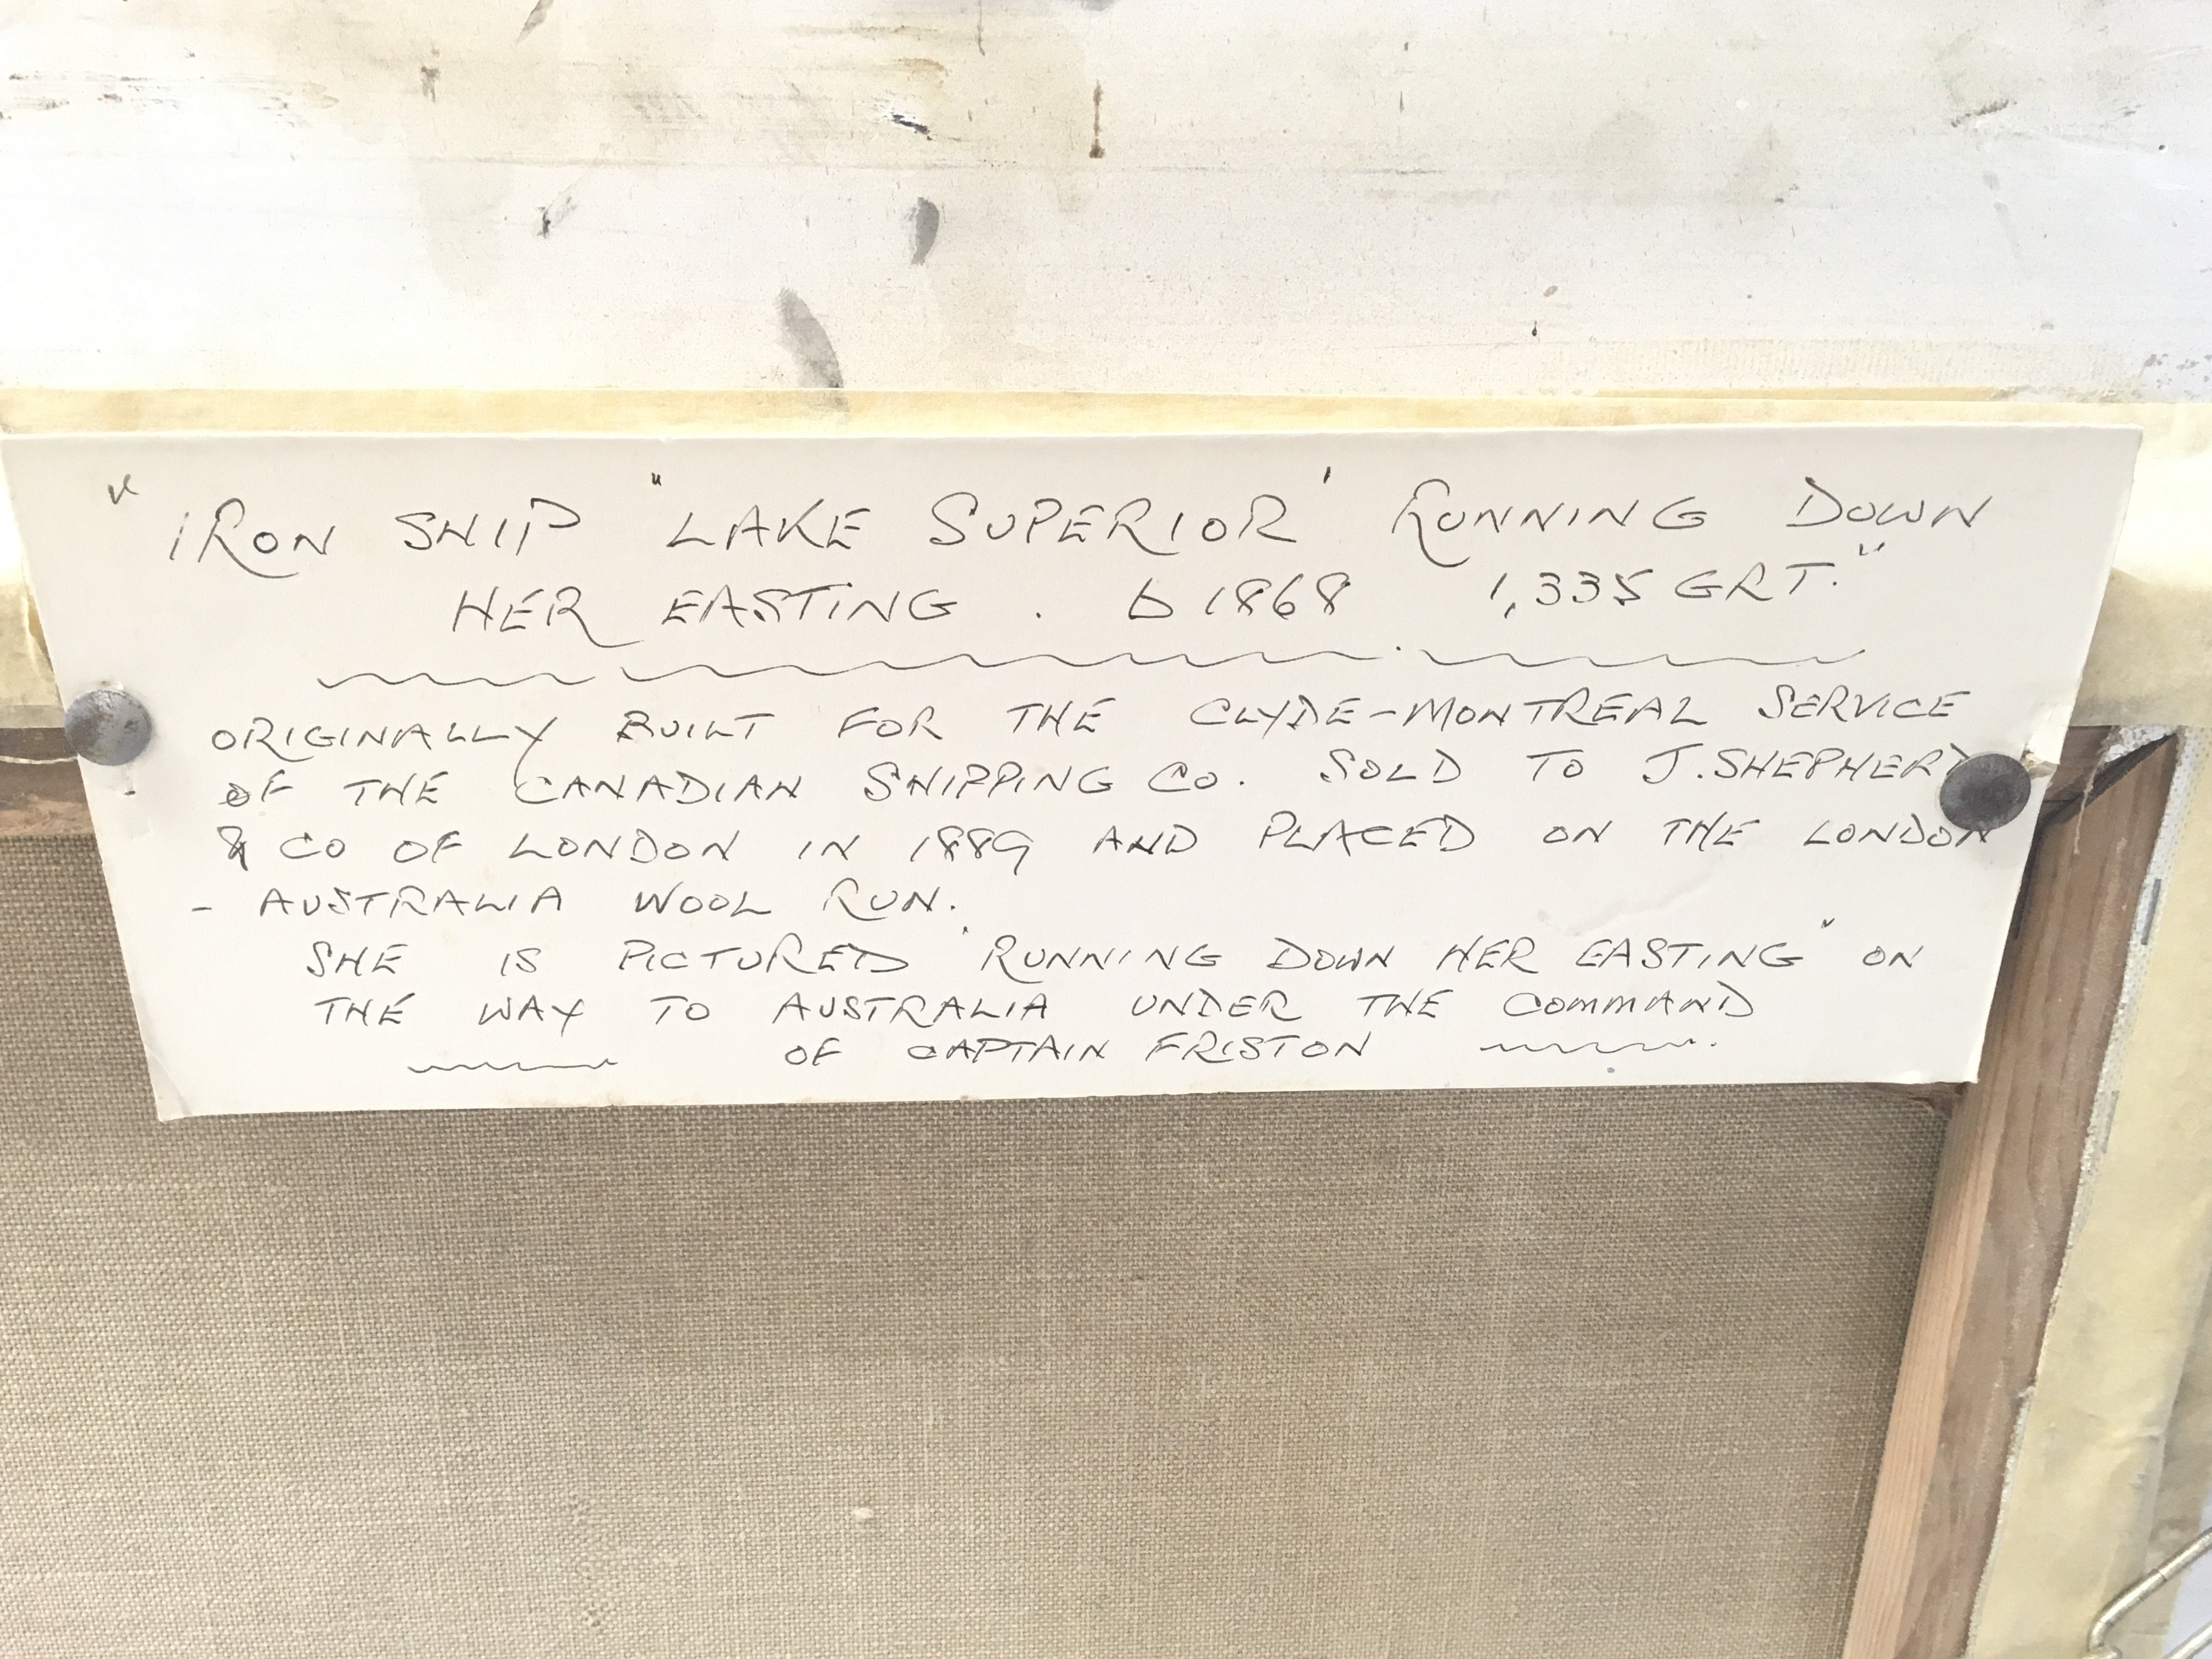 "IRON SHIP "LAKE SUPERIOR' RUNNING DOWN
HER EASTING. b 1868 1,335 GRT."
ORIGINALLY BUILT FOR THE CLYDE-MONTREAL SERVICE
OF THE CANADIAN SHIPPING CO. SOLD TO J. SHEPHERD
& CO OF LONDON IN 1889 AND PLACED ON THE LONDON
- AUSTRALIA WOOL RUN.
SHE IS PICTURED 'RUNNING DOWN HER EASTING" ON
THE WAY TO AUSTRALIA UNDER THE COMMAND
OF CAPTAIN FRISTON